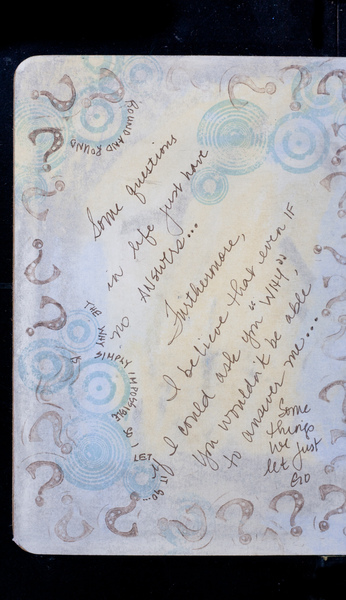 ROUND AND ROUND
Some questions
in life just have
no ANSWERS...
Furthermore,
I believe that even IF
I could ask you "WHY",
you wouldn't be able
to answer me...
Some
things
we just
let
GO
THE WHY
IS
SIMPLY IMPOSSIBLE
SO I LET
IT GO...